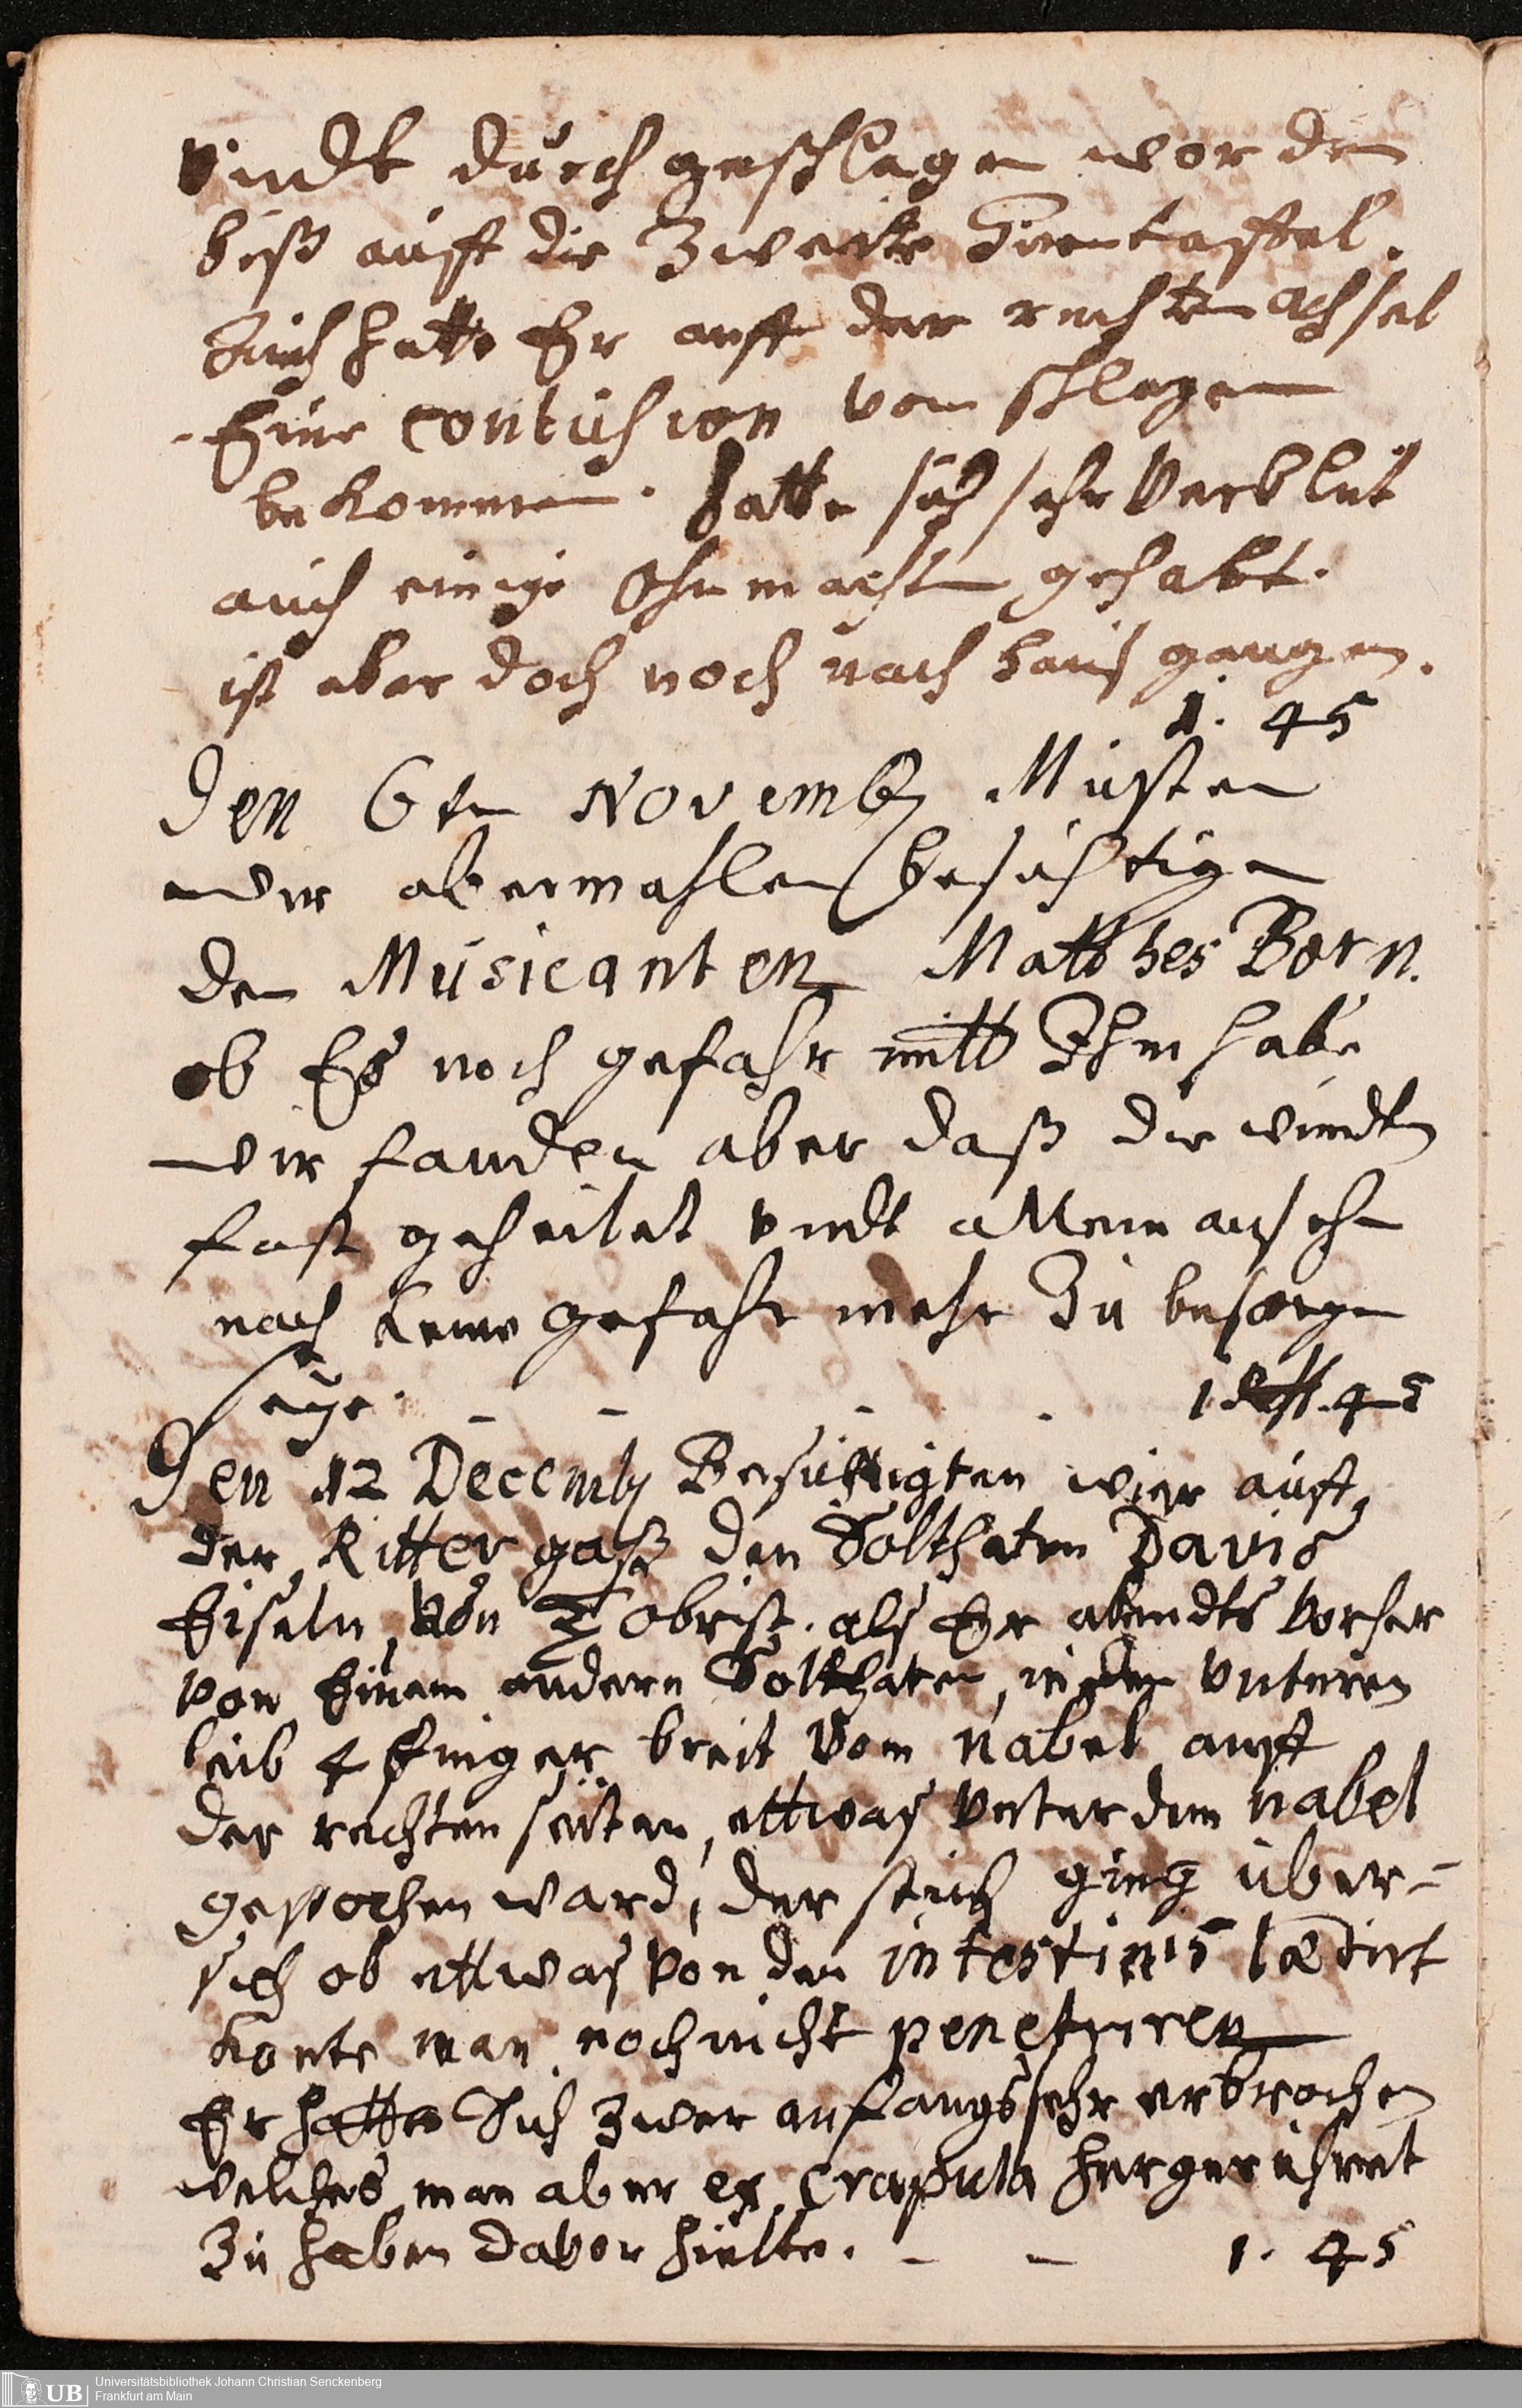 vndt durch geschlagen worden
biß auff die Zweitte Hirentaffel.
Auch hatte Er auff der rechten achsel
Eine contusion vom schlagen
bekommen. Hatte sich sehr verblut
auch einige Ohnmachten gehabt.
ist aber doch noch nach hauß gangen.
1. 45
Den 6ten Novemb Musten
wir abermahlen besichtigen
den Musicanten Matthes Born.
ob Es noch gefahr mitt Ihm habe
wir fanden aber daß die wundten
fast geheilet vndt allem ansehn
nach keine gefahr mehr Zu besorgen
seye. - - - - 1 45
Den 12 Decemb Besichtigten wier auff
der Rittergaß den Solthaten Davis
Eiseln, von Tobrist. alß Er abendts vorher
von Einem andern Solthaten, in den vnteren
leib 4 finger breit vom nabel auff
der rechten seiten, ettwaß vnter dem nabel
gestochen ward, der stich ging über-
sich ob ettwaß von den intestinis lædirt
konte man noch nicht penetriren
Er hatte Sich zwar anfangs sehr erbrochen
welches man aber ex crapula hergerühret
Zu haben davor hielte. - - 1. 45
UB Universitätsbibliothek Johann Christian Senckenberg
Frankfurt am Main